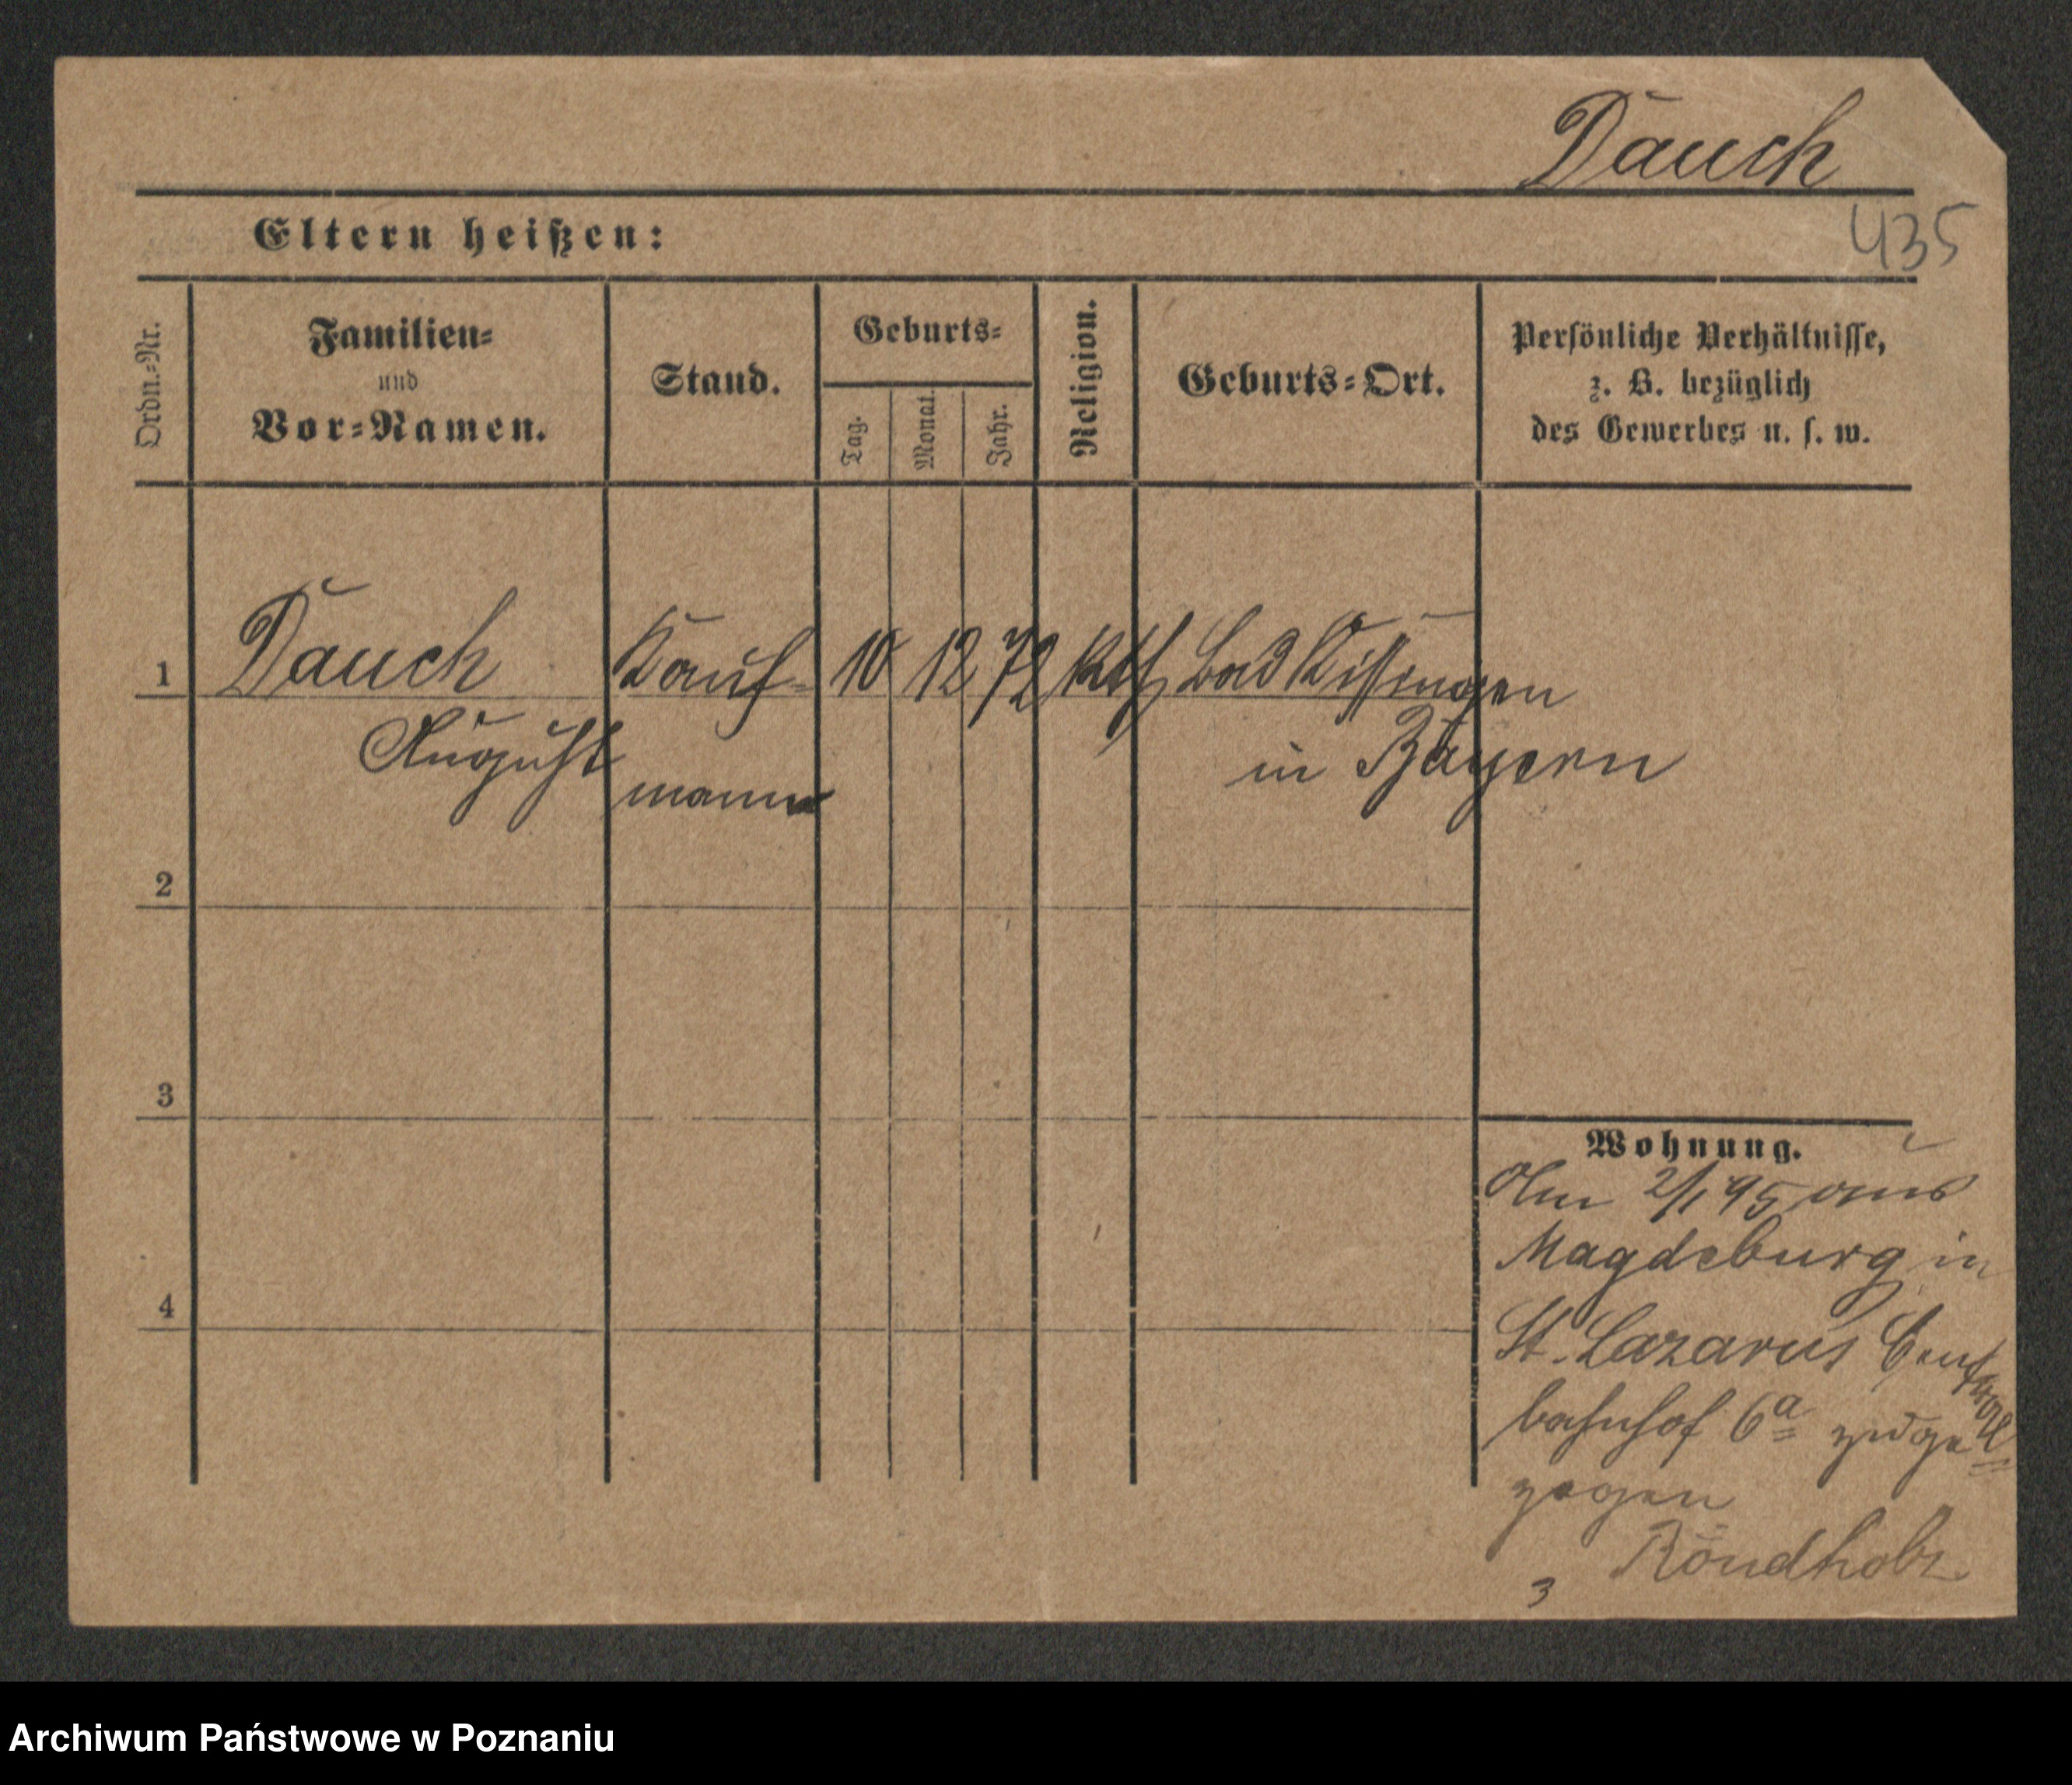 Dauch
435
Eltern heißen:
Ordn.-Nr.
Familien-
und
Vor-Namen.
Stand.
Geburts-
Tag.
Monat.
Jahr.
Religion.
Geburts-Ort.
Persönliche Verhältnisse,
z. B. bezüglich
des Gewerbes u. s. w.
1 Dauch Kauf- 10 12 72 kth Bad Kissingen
August mann in Bayern
2
3
4
Wohnung.
Am 2/1 95 aus
Magdeburg in
St. Lazarus Central
bahnhof 6a zuge=
zogen
3
Archiwum Państwowe w Poznaniu